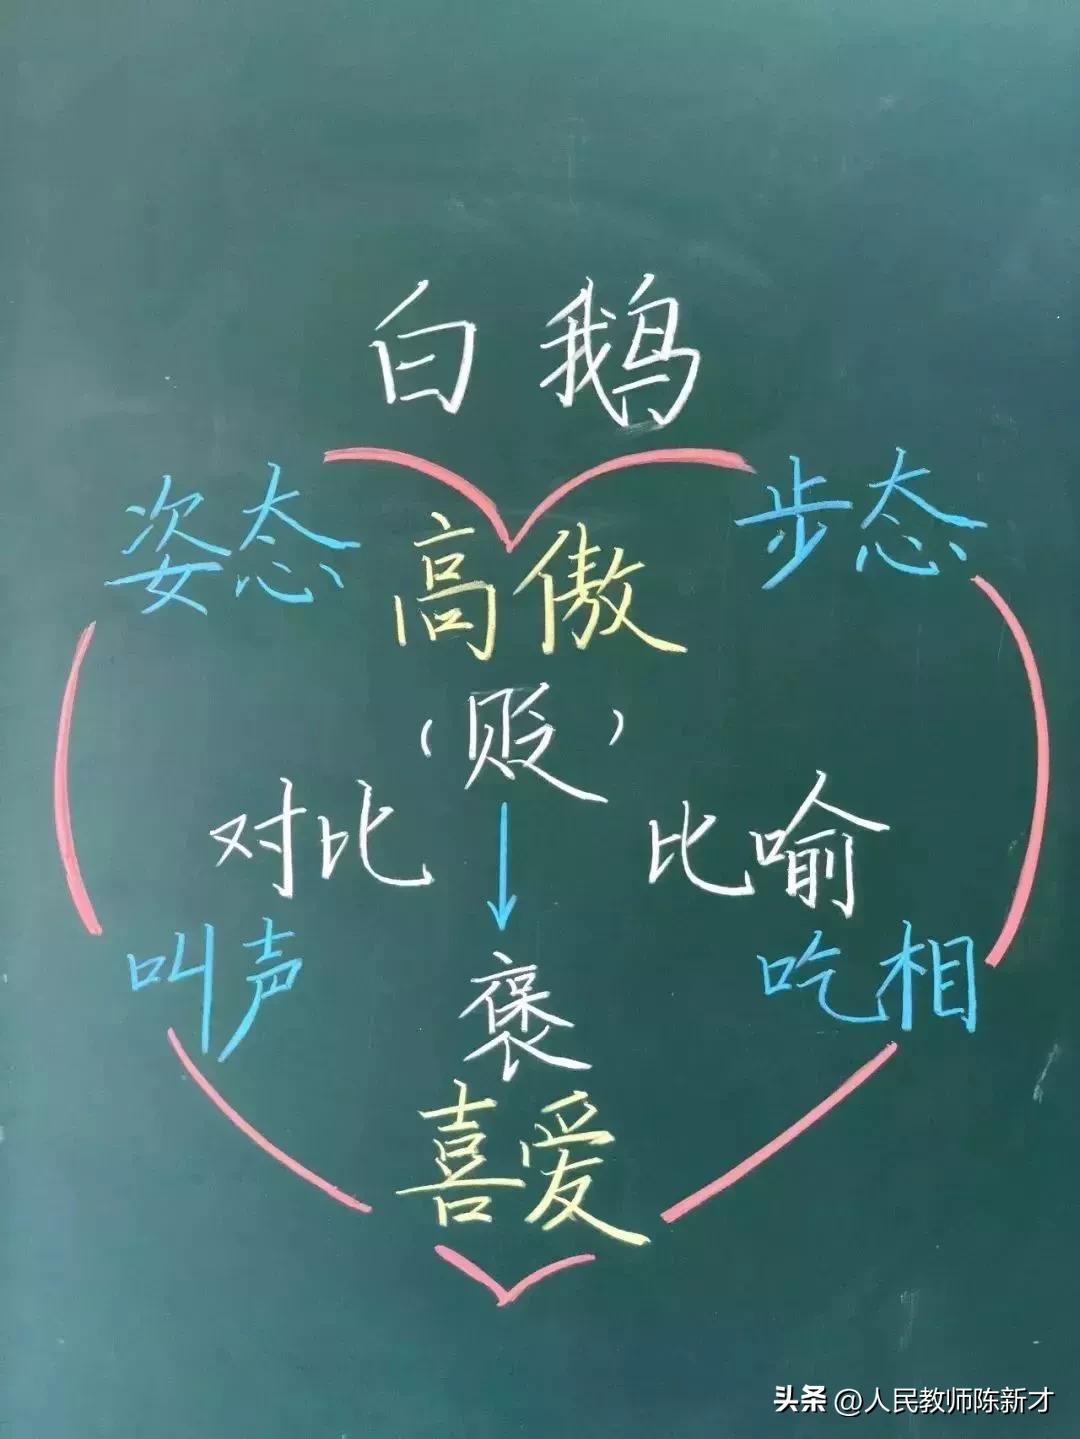 白鹅
姿态
步态
高傲
（贬）
对比
比喻
叫声
吃相
褒
喜爱
头条 @人民教师陈新才